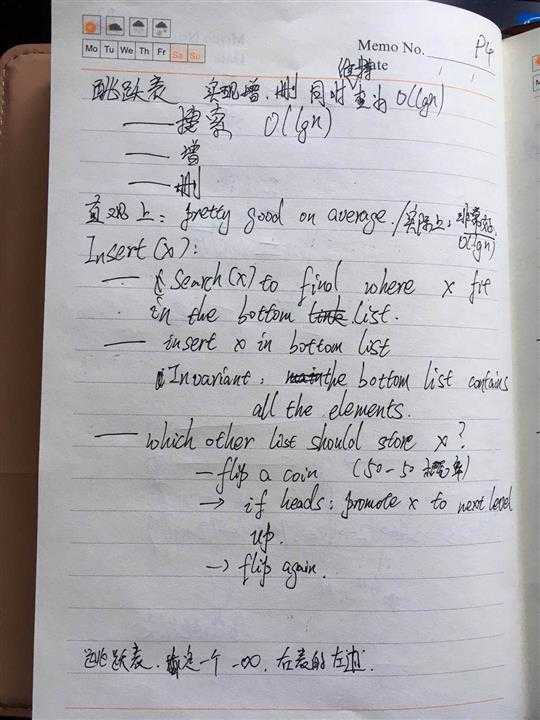 Mo Tu We Th Fr Sa Su
Memo No. P4
Date / /
维持
跳跃表 实现增、删 同时 查为 O(lgn)
— 搜索 O(lgn)
— 增
— 删
直观上: pretty good on average. /实际上, 非常好
O(lgn)
Insert(x):
— Search(x) to find where x fit
in the bottom list.
— insert x in bottom list
Invariant: the bottom list contains
all the elements.
— which other list should store x?
— flip a coin (50-50 概率)
→ if heads: promote x to next level
up.
→ flip again.
跳跃表. 一个 -∞. 在表的左边.